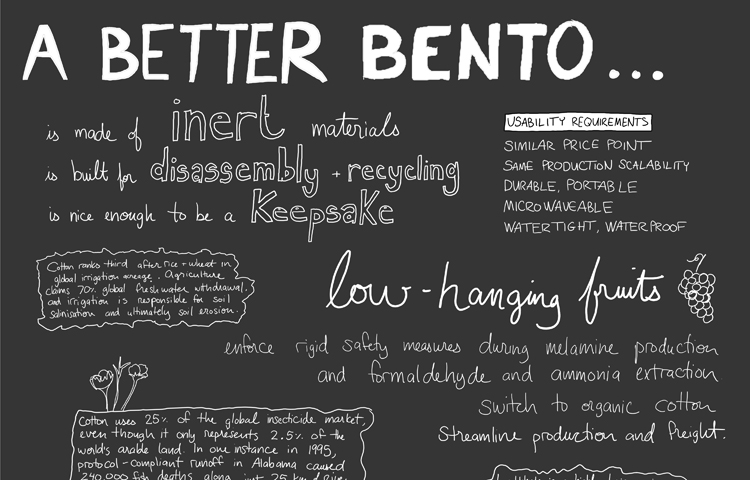 A BETTER BENTO...
is made of inert materials
is built for disassembly + recycling
is nice enough to be a Keepsake
USABILITY REQUIREMENTS
SIMILAR PRICE POINT
SAME PRODUCTION SCALABILITY
DURABLE, PORTABLE
MICROWAVEABLE
WATERTIGHT, WATERPROOF
Cotton ranks third after rice + wheat in
global irrigation acreage. Agriculture
claims 70% global freshwater withdrawal,
and irrigation is responsible for soil
salinisation and ultimately soil erosion.
low-hanging fruits
enforce rigid safety measures during melamine production
and formaldehyde and ammonia extraction
switch to organic cotton
Streamline production and freight.
Cotton uses 25% of the global insecticide market,
even though it only represents 2.5% of the
world's arable land. In one instance in 1995,
protocol-compliant runoff in Alabama caused
240,000 fish deaths along just 25 km of